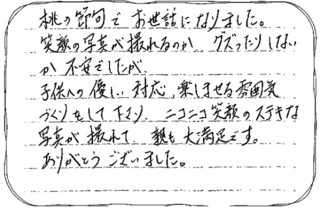 桃の節句で お世話になりました。
笑顔の写真が撮れるのか グズったりしない
か 不安でしたが、
子供への優しい対応、楽しませる雰囲気
づくりをして下さり、ニコニコ笑顔のステキな
写真が撮れて 親も大満足です。
ありがとうございました。